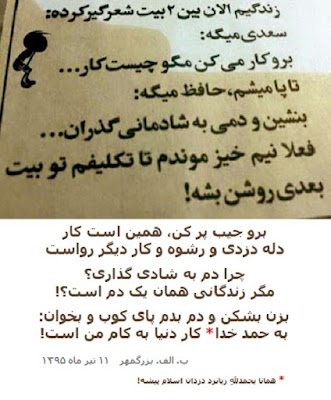 زندگیم الان بین ۲ بیت شعر گیر کرده:
سعدی میگه:
برو کار می کن مگو چیست کار...
تا پا میشم، حافظ میگه:
بنشین و دمی به شادمانی گذران...
فعلا نیم خیز موندم تا تکلیفم تو بیت
بعدی روشن بشه!
برو جیب پر کن، همین است کار
دله دزدی و رشوه و کار دیگر رواست
چرا دم به شادی گذاری؟
مگر زندگانی همان یک دم است؟!
بزن بشکن و دم بدم پای کوب و بخوان:
به حمد خدا* کار دنیا به کام من است!
ب. الف. بزرگمهر ۱۱ تیر ماه ۱۳۹۵
* همانا بحمدالله زبانزد دزدان اسلام پیشه!